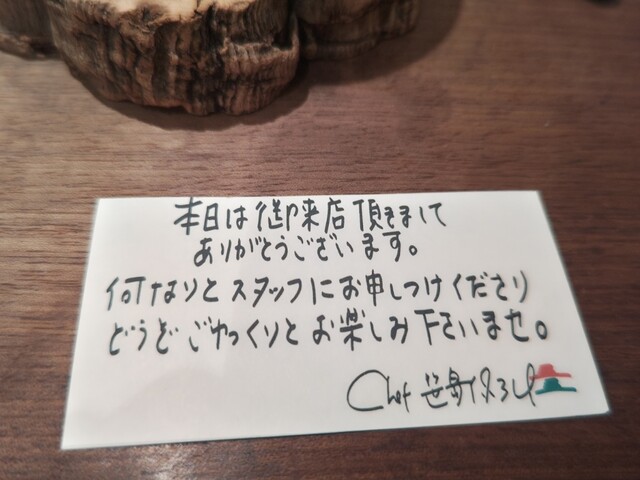 本日は御来店頂きまして
ありがとうございます。
何なりとスタッフにお申しつけくださり
どうぞごゆっくりとお楽しみ下さいませ。
Chef